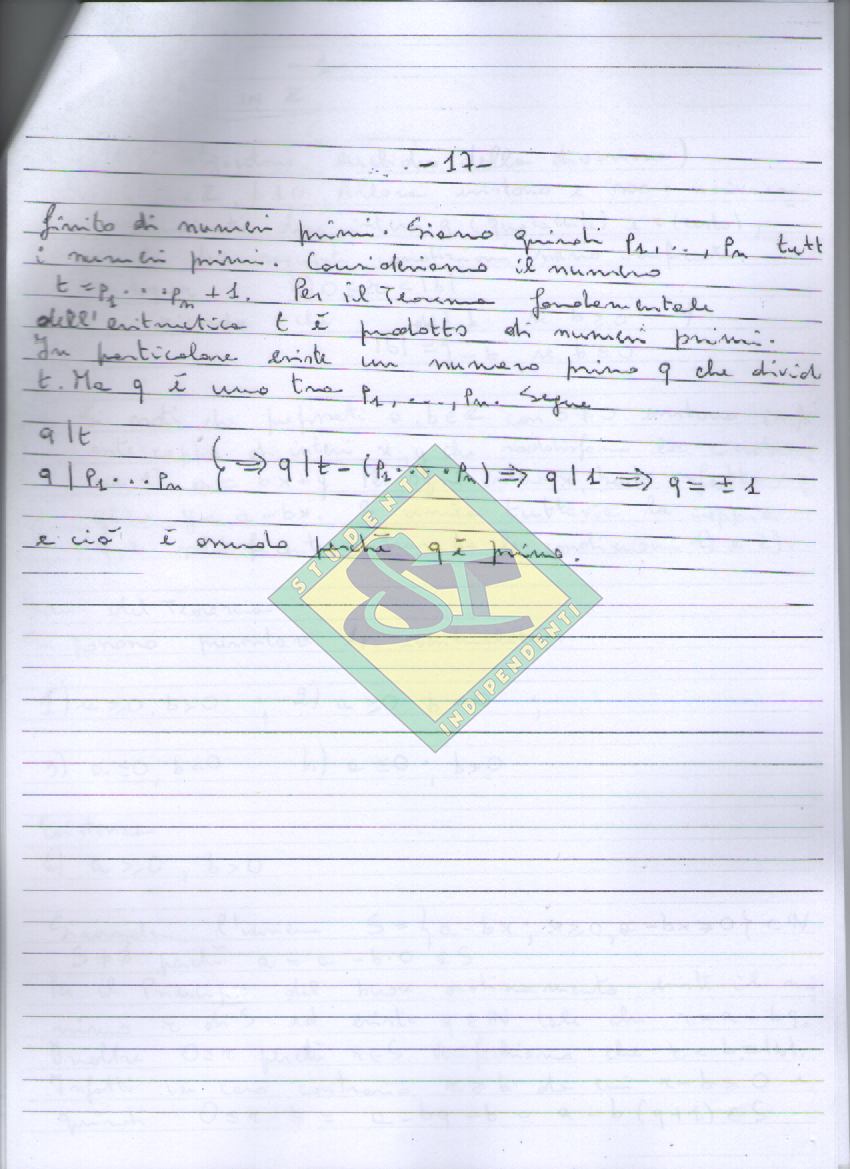 -17-
finito di numeri primi. Siano quindi P1,..., Pn tutt
i numeri primi. Consideriamo il numero
t = P1 ··· Pn + 1. Per il Teorema fondamentale
dell'aritmetica t è prodotto di numeri primi.
In particolare esiste un numero primo q che divid
t. Ma q è uno tra P1, ..., Pn. Segue
q | t
q | P1 ··· Pn ( => q | t - (P1 ··· Pn) => q | 1 => q = ± 1
e ciò è assurdo perché q è primo.
STUDENTI
SI
INDIPENDENTI